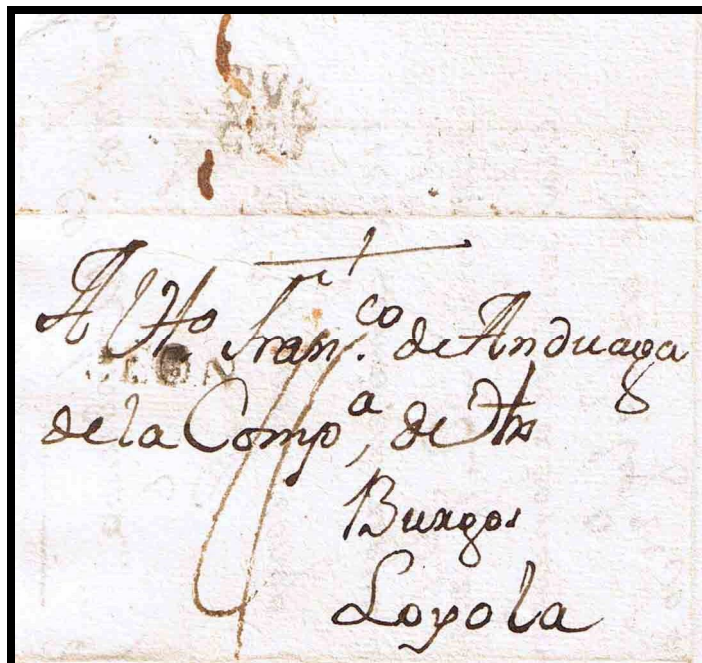 Al Ho Fran.co de Anduaga
LEON
de la Compa, de Jhs
Burgos
Loyola